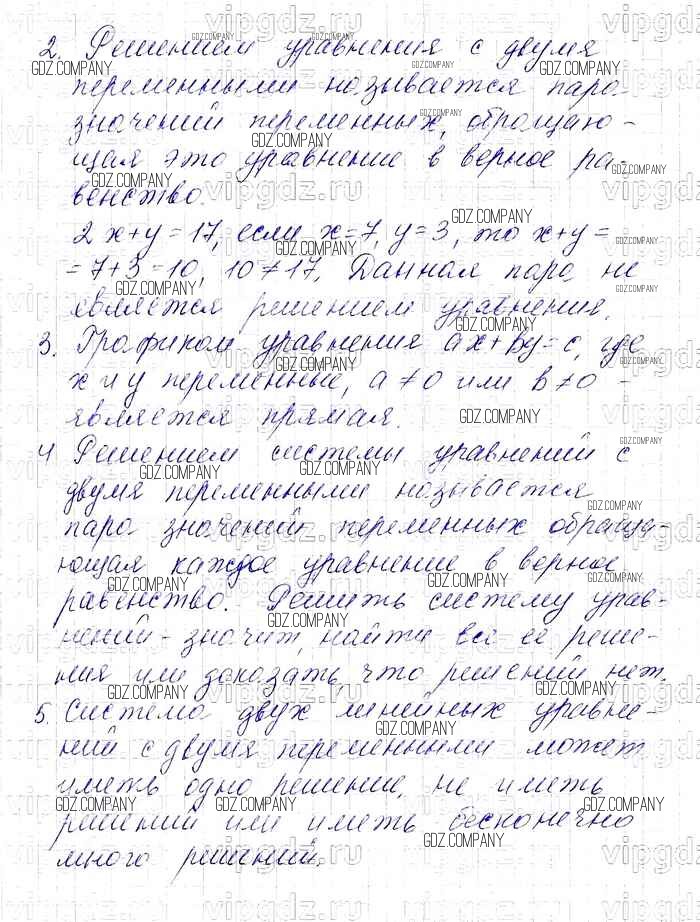 2. Решением уравнения с двумя
переменными называется пара
значений переменных, обращаю-
щая это уравнение в верное ра-
венство.
2 x+y=17, если x=7, y=3, то x+y=
=7+3=10, 10≠17. Данная пара не
является решением уравнения.
3. Графиком уравнения ax+by=c, где
x и y переменные, a≠0 или b≠0 -
является прямая.
4. Решением системы уравнений с
двумя переменными называется
пара значений переменных обраща-
ющая каждое уравнение в верное
равенство. Решить систему урав-
нений - значит, найти все её реше-
ния или доказать, что решений нет.
5. Система двух линейных уравне-
ний с двумя переменными может
иметь одно решение, не иметь
решений или иметь бесконечно
много решений.
GDZ.COMPANY
vipgdz.ru